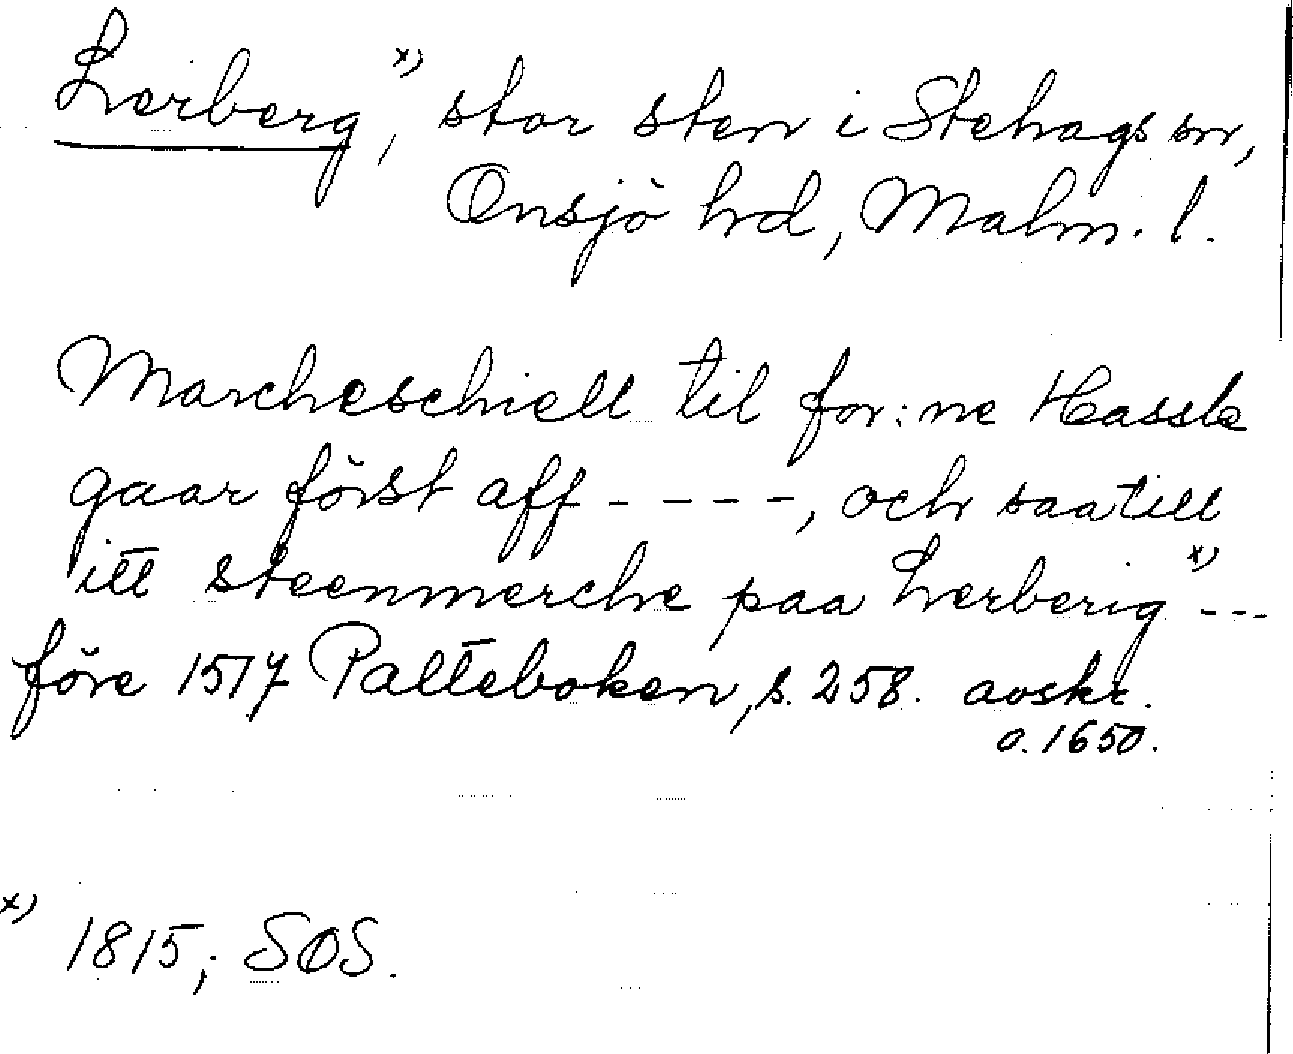 Lerberg,ˣ⁾ stor sten i Stehags sn,
Onsjö hd, Malm. l.
Marcheschiell til for:ne Hassle
gaar först aff - - - -, och saa till
itt steenmerche paa Lerberigˣ⁾ ---
före 1517 Palteboken, s. 258. avskr.
o. 1650.
ˣ⁾ 1815; SOS.